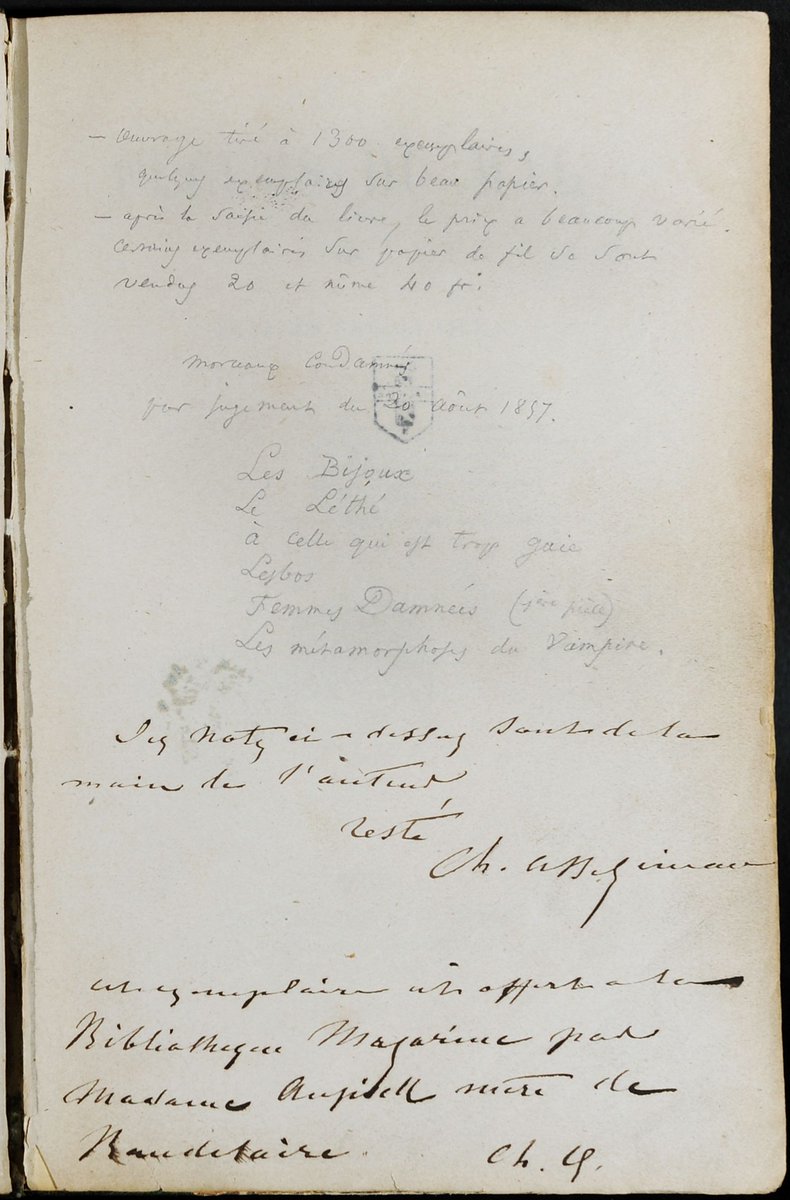 — Ouvrage tiré à 1300 exemplaires,
quelques exemplaires sur beau papier.
— après la saisie du livre, le prix a beaucoup varié.
certains exemplaires sur papier de fil se sont
vendus 20 et même 40 fr.
morceaux condamnés
par jugement du 20 août 1857.
Les Bijoux
Le Léthé
à celle qui est trop gaie
Lesbos
Femmes Damnées (1ère pièce)
Les métamorphoses du Vampire.
Les notes ci-dessus sont de la
main de l'auteur
Ch. Asselineau
cet exemplaire est offert à la
Bibliothèque Mazarine par
Madame Aupick mère de
Baudelaire.
Ch. A.